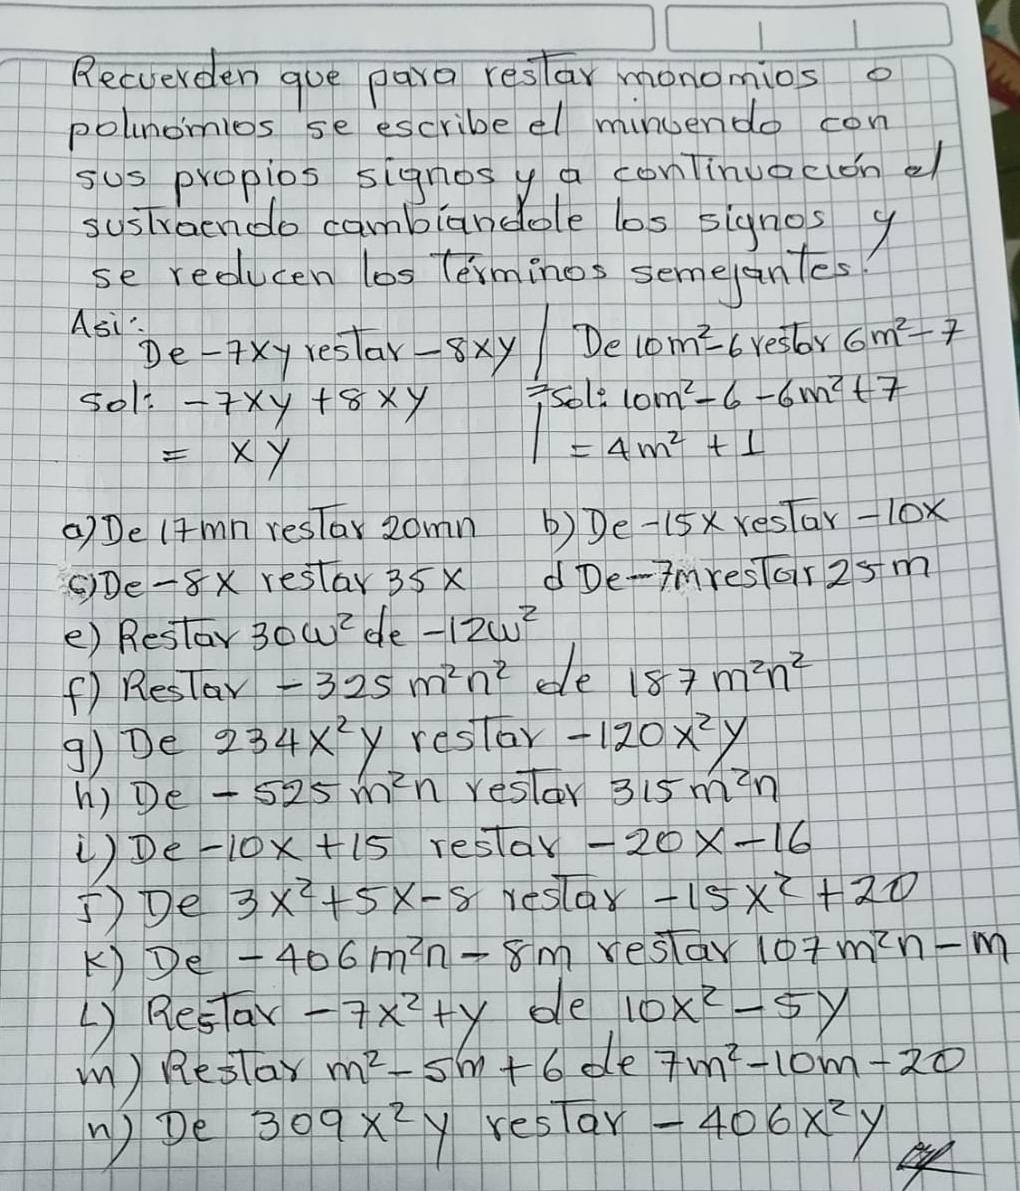 Recuerden que para restar monomios o
polinomios se escribe el minuendo con
sus propios signos y a continuación el
sustraendo cambiandole los signos y
se reducen los términos semejantes.
Asi:
De -7xy restar -8xy | De 10m²-6 restar 6m²-7
sol: -7xy +8xy sol: 10m²-6-6m²+7
= xy | = 4m² + 1
a) De 17mn restar 20mn b) De -15x restar -10x
c) De -8x restar 35x d De -7m restar 25m
e) Restar 30w² de -12w²
f) Restar -325 m²n² de 187 m²n²
g) De 234x²y restar -120x²y
h) De -525 m²n restar 315 m²n
i) De -10x +15 restar -20x -16
J) De 3x²+5x-8 restar -15x² +20
K) De -406m²n - 8m restar 107m²n - m
L) Restar -7x²+y de 10x² - 5y
m) Restar m² - 5m + 6 de 7m² -10m -20
n) De 309x²y restar -406x²y